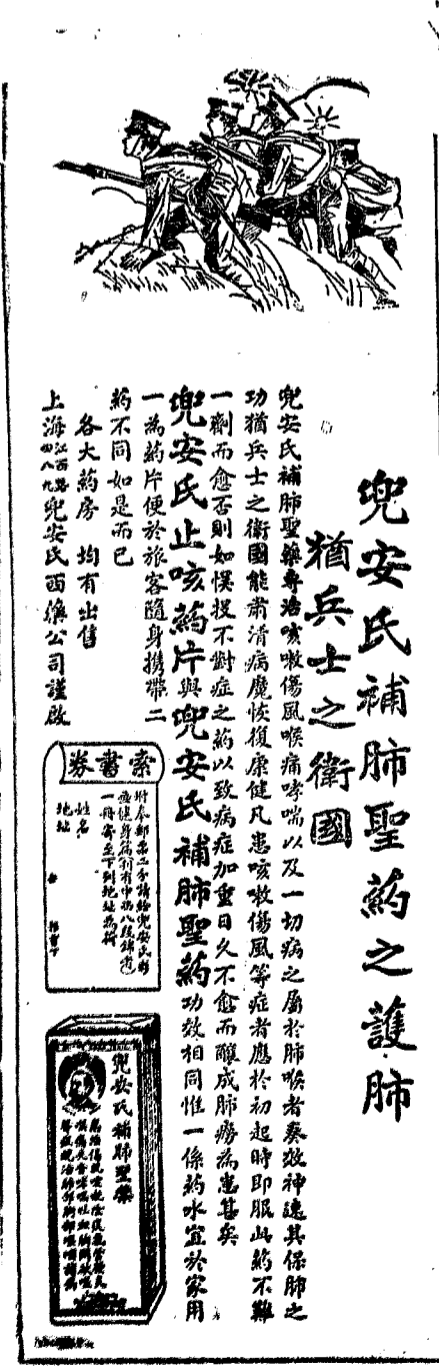 兜安氏補肺聖葯之護肺
猶兵士之衛國
兜安氏補肺聖藥專治咳嗽傷風喉痛哮喘以及一切病之屬於肺喉者奏效神速其保肺之
功猶兵士之衛國能肅清病魔恢復康健凡患咳嗽傷風等症者應於初起時即服此葯不難
一劑而愈否則如悞投不對症之葯以致病症加重日久不愈而釀成肺癆為患甚矣
兜安氏止咳葯片與兜安氏補肺聖葯功效相同惟一係葯水宜於家用
一為葯片便於旅客隨身携帶二
葯不同如是而已
各大葯房 均有出售
上海江西路四八九兜安氏西藥公司謹啟
索書券
附奉郵票二分請給兜安氏
健身篇內有中揚八段錦
一冊寄至下列地址為荷
姓名
地址
兜安氏補肺聖藥